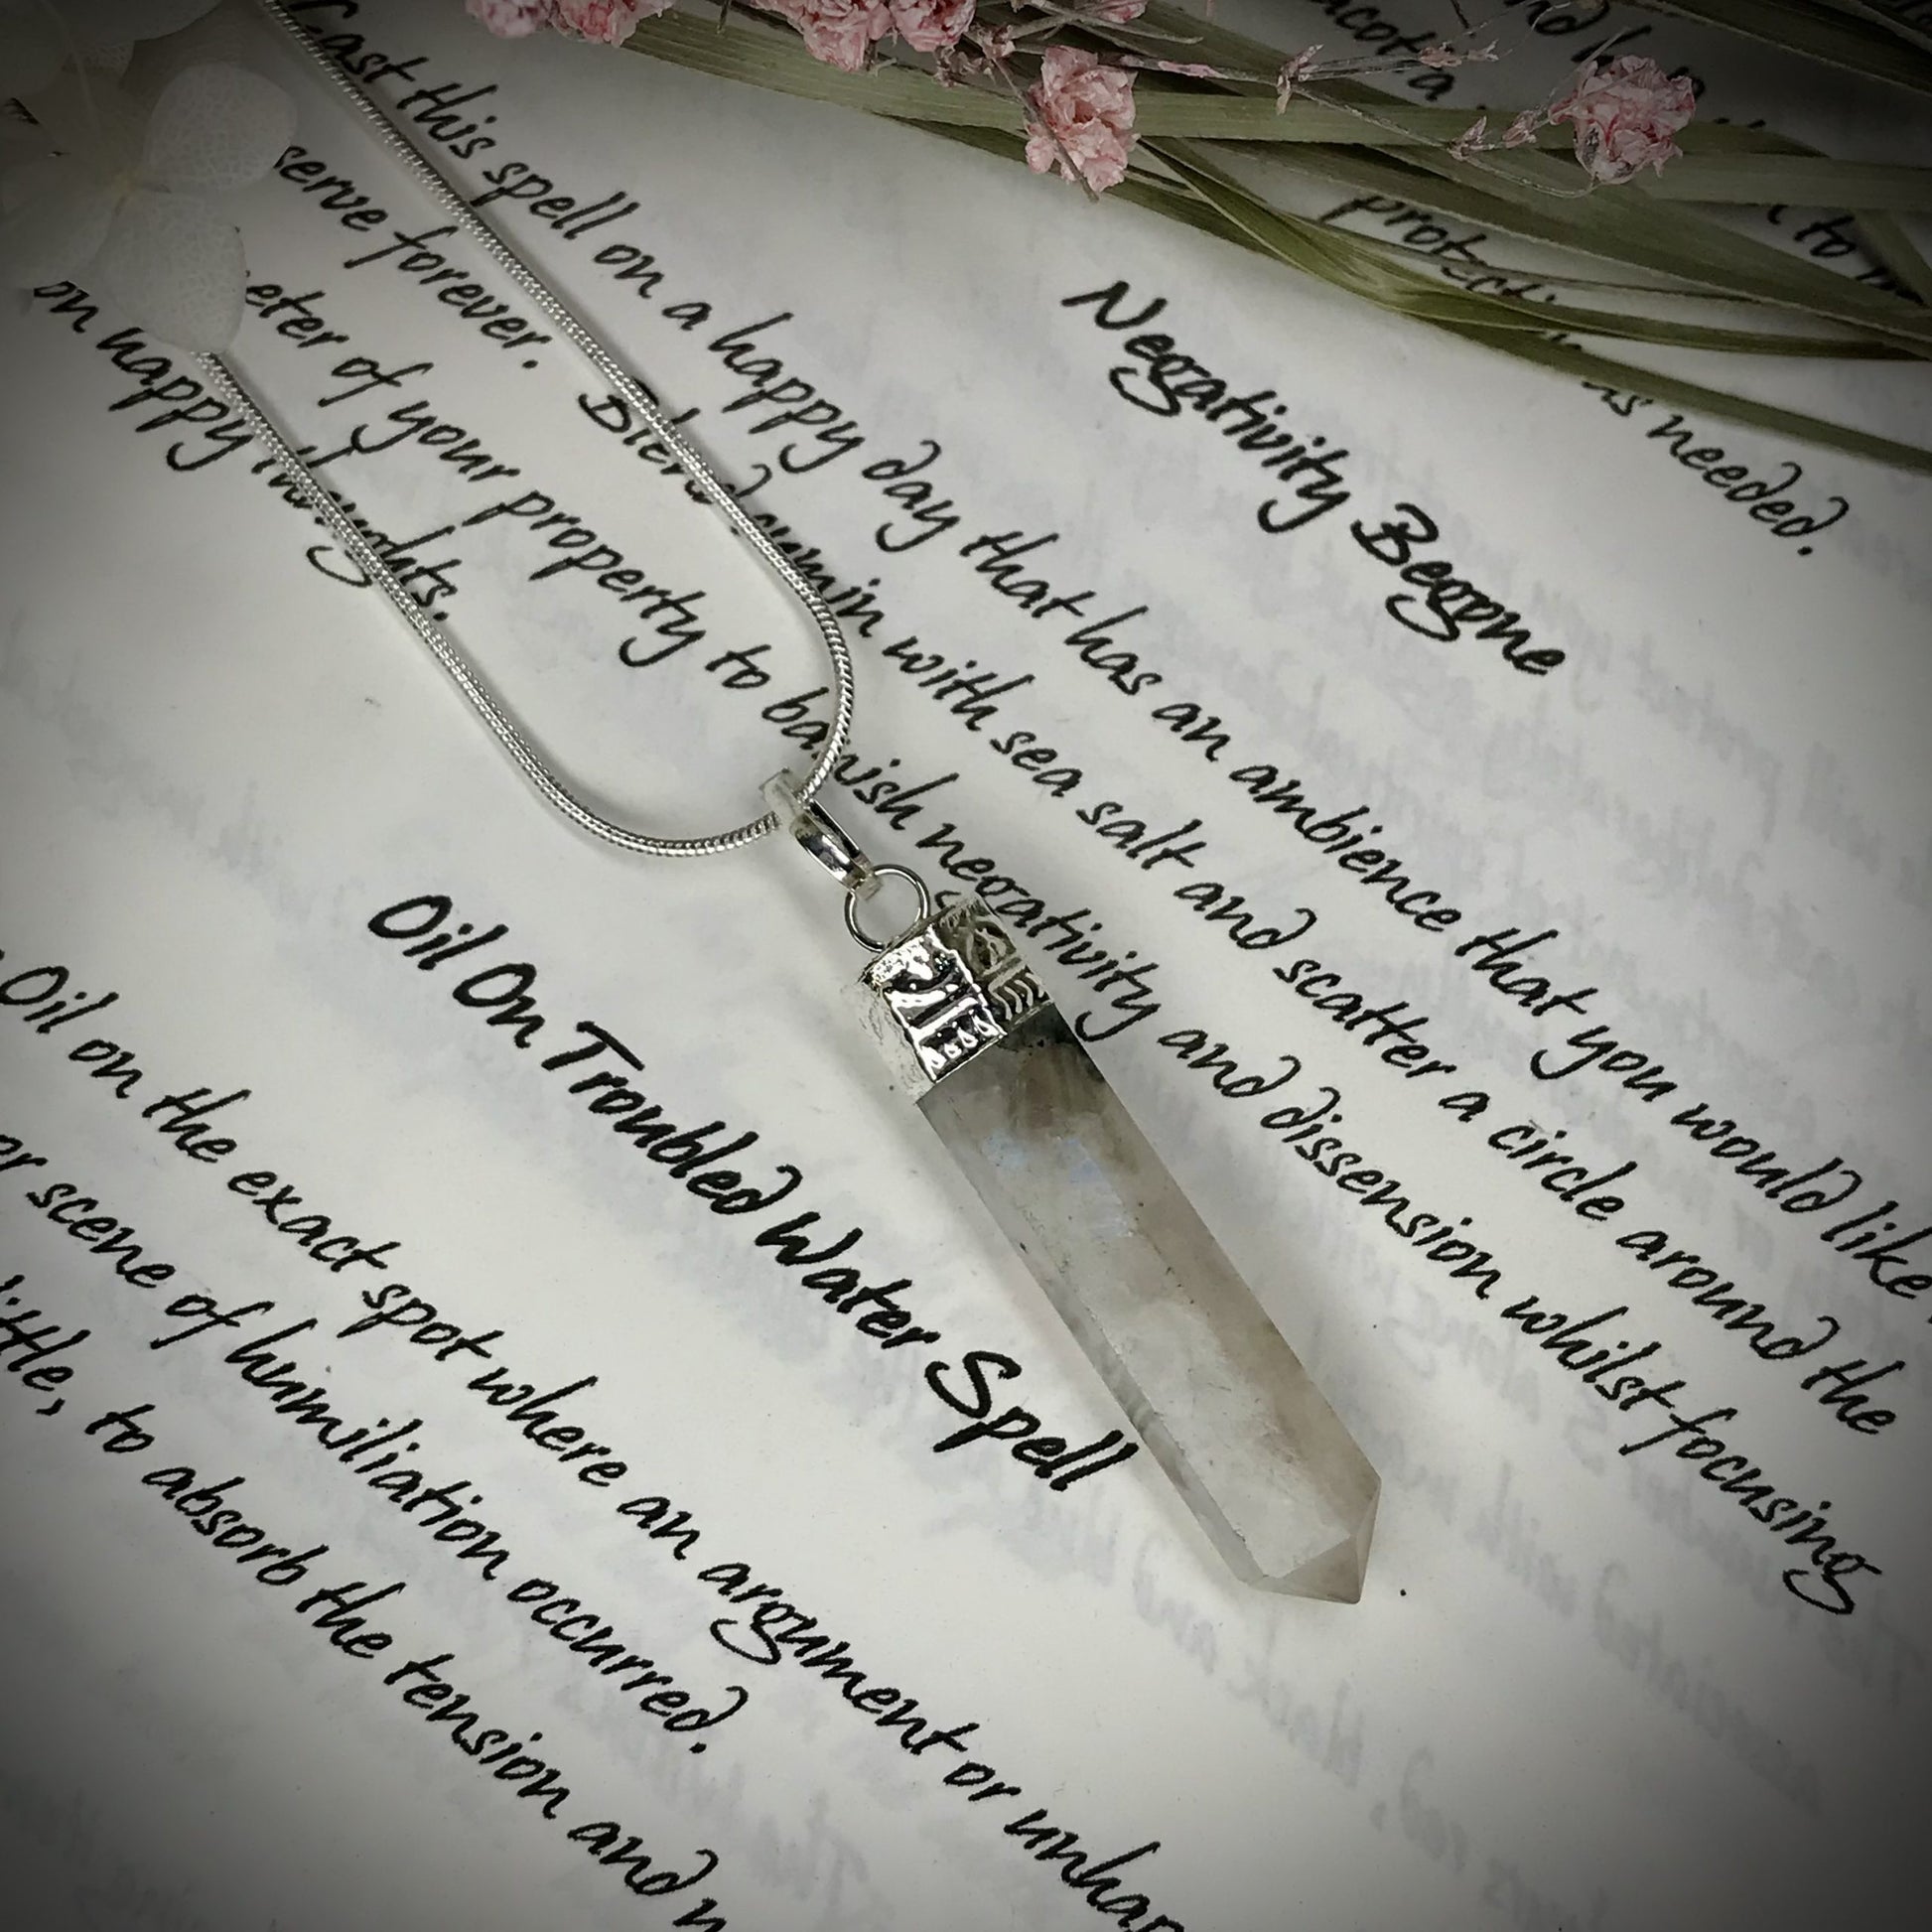 protecti
to
as needed.
Negativity Begone
Cast this spell on a happy day that has an ambience that you would like
serve forever. Blend cumin with sea salt and scatter a circle around the
eter of your property to banish negativity and dissension whilst focusing
on happy thoughts.
Oil On Troubled Water Spell
Oil on the exact spot where an argument or unhap
er scene of humiliation occurred.
ittle, to absorb the tension and